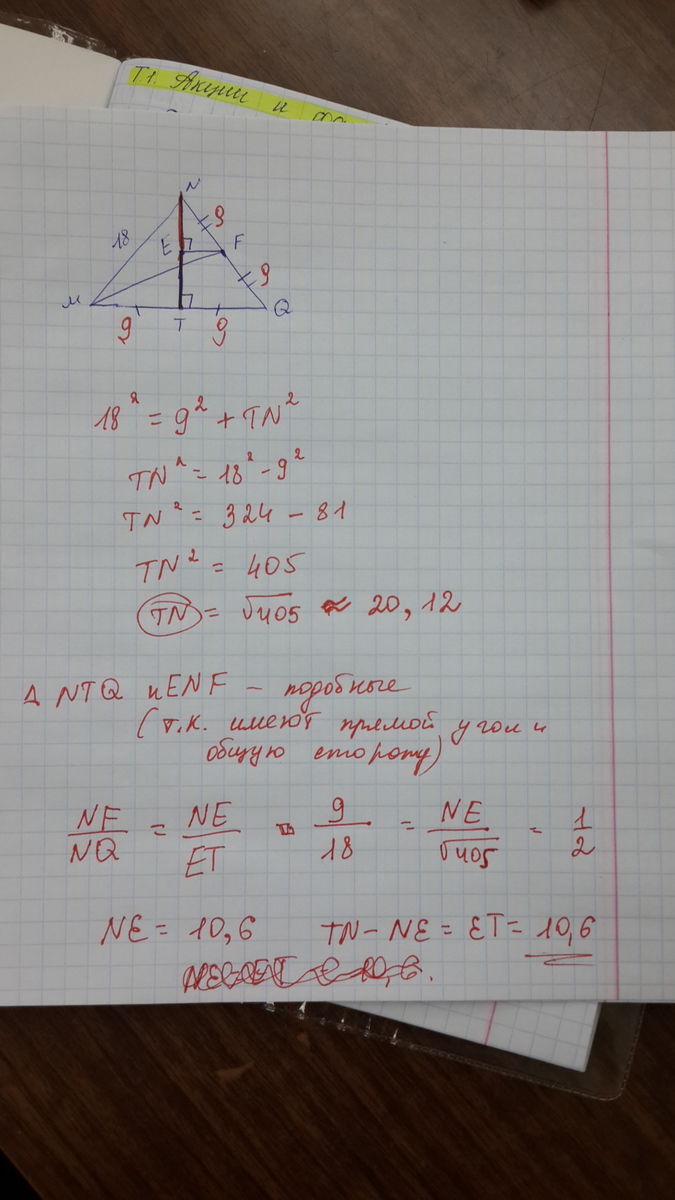 Т.1. Акции и
N
18
9
E
F
9
M
T
Q
9
9
18² = 9² + TN²
TN² = 18² - 9²
TN² = 324 - 81
TN² = 405
TN = √405 ≈ 20,12
Δ NTQ и ENF - подобные
(т.к. имеют прямой угол и
общую сторону)
NF/NQ = NE/ET = 9/18 = NE/√405 = 1/2
NE = 10,6 TN - NE = ET = 10,6